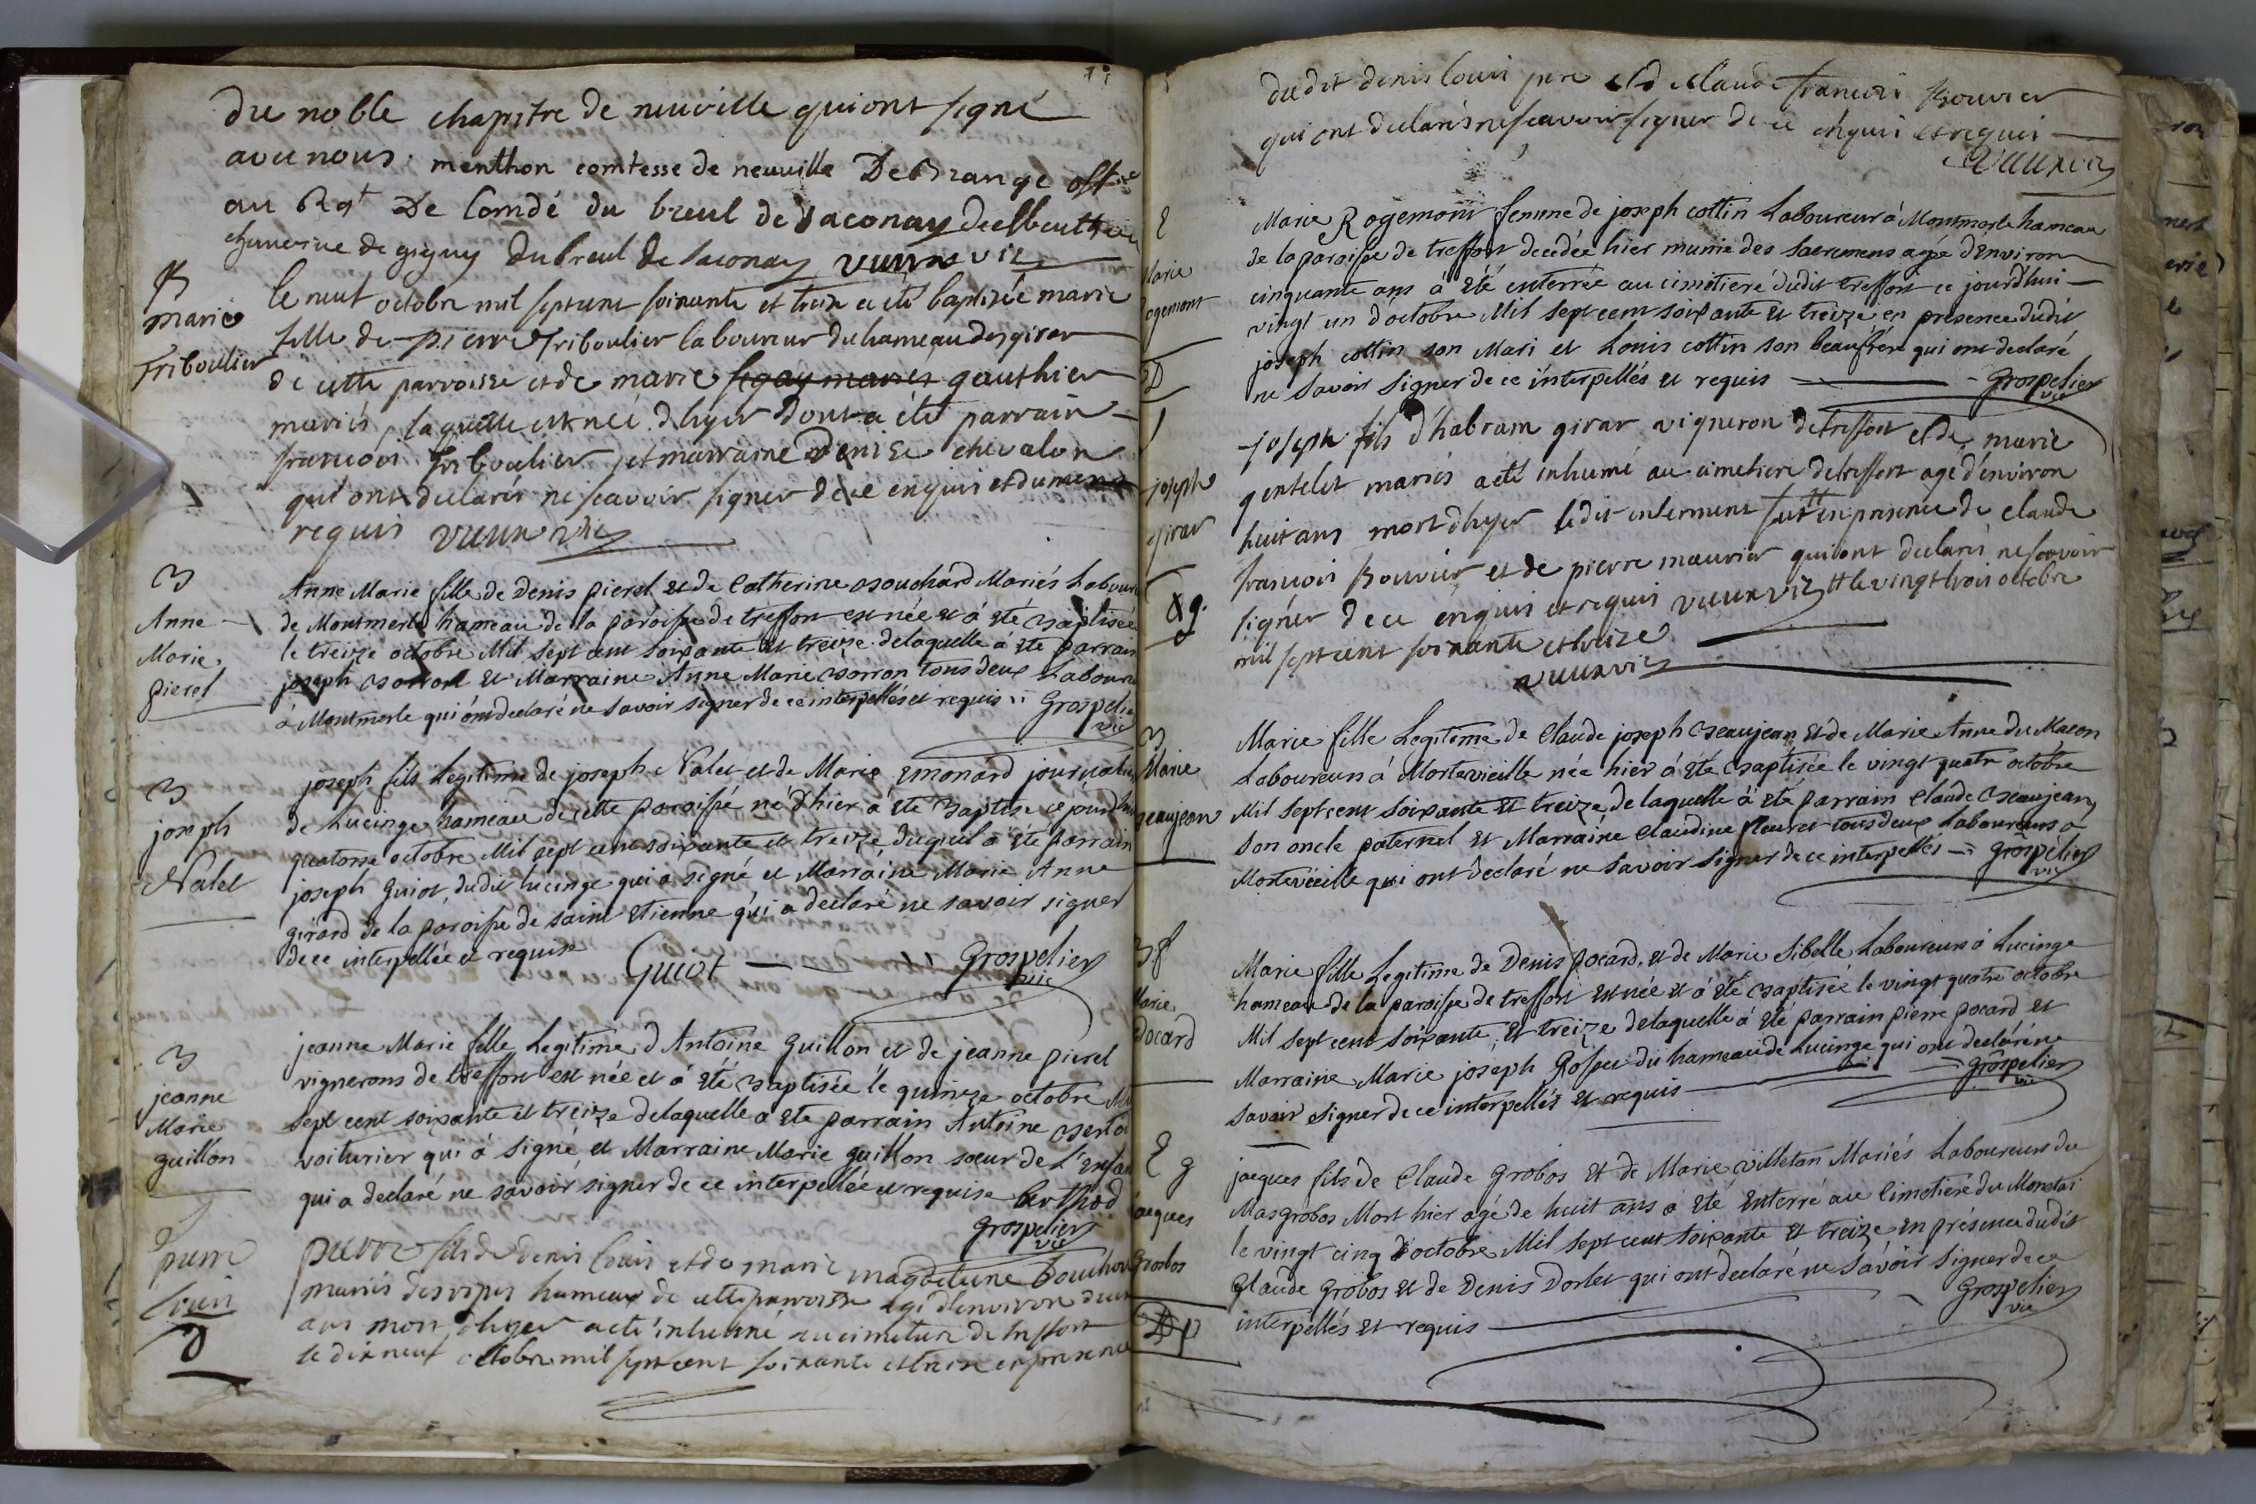 du noble chapitre de neuville qui ont signé
avec nous. menthon comtesse de neuville De Brange off
au Rgt De Comdé du breul de Saconay
de gigny dubreul de Saconay vuuarvic
B
marie
Triboulier
le neuf octobre mil sept cent soixante et treize a été baptisée marie
fille de pierre Triboulier laboureur du hameau des girar
de cette parroisse et de marie gauthier
mariés, laquelle est née d'hyer dont a été parrain
francois Triboulier et marraine Denise chevalon
qui ont declarés ne scavoir signer de ce enquis et dument
requis
B
Anne
Marie
pierel
Anne Marie fille de Denis pierel et de Catherine Bouchard Mariés Labour
de Montmerle hameau de la paroisse de treffort est née et à eté Baptisée
le treize octobre Mil sept cent soixante et treize de laquelle à eté parrain
joseph Borron et Marraine Anne Marie Borron tous deux Labour
à Montmerle qui ont declaré ne savoir signer de ce interpellés et requis Grospelier
vic
B
joseph
Nalet
joseph fils Legitime de joseph Nalet et de Marie Emonard journalie
de Lucinge hameau de cette paroisse né d'hier à eté Baptisé ce jourd'hui
quatorse octobre Mil sept cent soixante et treize duquel à eté parrain
joseph Guiot dudit lucinge qui a signé et Marraine Marie Anne
girard de la paroisse de saint Etienne qui a declaré ne savoir signer
de ce interpellée et requise
Guiot Grospelier
vic
B
jeanne
Marie
guillon
jeanne Marie fille Legitime d'Antoine Guillon et de jeanne pierel
vignerons de treffort est née et à eté Baptisée le quinze octobre Mil
sept cent soixante et treize de laquelle a eté parrain Antoine Berto
voiturier qui à signé et Marraine Marie guillon sœur de L'Enfan
qui a declaré ne savoir signer de ce interpellée et requise berthod
Grospelier
vic
pierre
louis
D
pierre fils de denis louis et de marie magdelene bouchar
mariés des vipes hameau de cette parroisse agé d'environ deux
ans mort d'hyer a été inhumé au cimetiere de treffort
le dix neuf octobre mil sept cent soixante et treize en presence
dudit denis louis pere et d claude francois Bouvier
qui ont declarés ne scavoir signer de ce enquis et requis
E
Marie
Rogemont
D
Marie Rogemont femme de joseph cottin Laboureur à Montmerle hameau
de la paroisse de treffort decedée hier munie des sacremens agée d'environ
cinquante ans à eté enterrée au cimetiere dudit treffort ce jourd'hui
vingt un d'octobre Mil sept cent soixante et treize en presence dudit
joseph cottin son Mari et Louis cottin son beaufrere qui ont declaré
ne savoir signer de ce interpellés et requis Grospelier
vic
joseph
girar
joseph fils d'habram girar vigneron de treffort et de marie
gentelet mariés a été inhumé au cimetiere de treffort agé d'environ
huit ans mort d'hyer ledit enterrement fut en presence de claude
francois Bouvier et de pierre maurier qui ont declarés ne scavoir
signer de ce enquis et requis le vingt trois octobre
mil sept cent soixante et treize
B
Marie
Beaujean
Marie fille Legitime de Claude joseph Beaujean et de Marie Anne du Macon
Laboureurs à Mortevieille née hier à eté Baptisée le vingt quatre octobre
Mil sept cent soixante et treize de laquelle à eté parrain Claude Beaujean
son oncle paternel et Marraine Claudine fleuret tous deux Laboureurs à
Mortevieille qui ont declaré ne savoir signer de ce interpellés Grospelier
vic
Marie
pocard
Marie fille Legitime de Denis pocard, et de Marie Sibelle Laboureurs à Lucinge
hameau de la paroisse de treffort est née et à eté Baptisée le vingt quatre octobre
Mil sept cent soixante et treize de laquelle à eté parrain pierre pocard et
Marraine Marie joseph du hameau de Lucinge qui ont declaré ne
savoir signer de ce interpellés et requis Grospelier
vic
E g
jacques
Grobos
jacques fils de Claude Grobos et de Marie villetan Mariés Laboureurs du
Masgrobos Mort hier agé de huit ans à eté enterré au Cimetiere du Monetai
le vingt cinq d'octobre Mil sept cent soixante et treize en présence dudit
Claude Grobos et de Denis Dorlet qui ont declaré ne savoir signer de ce
interpellés et requis Grospelier
vic